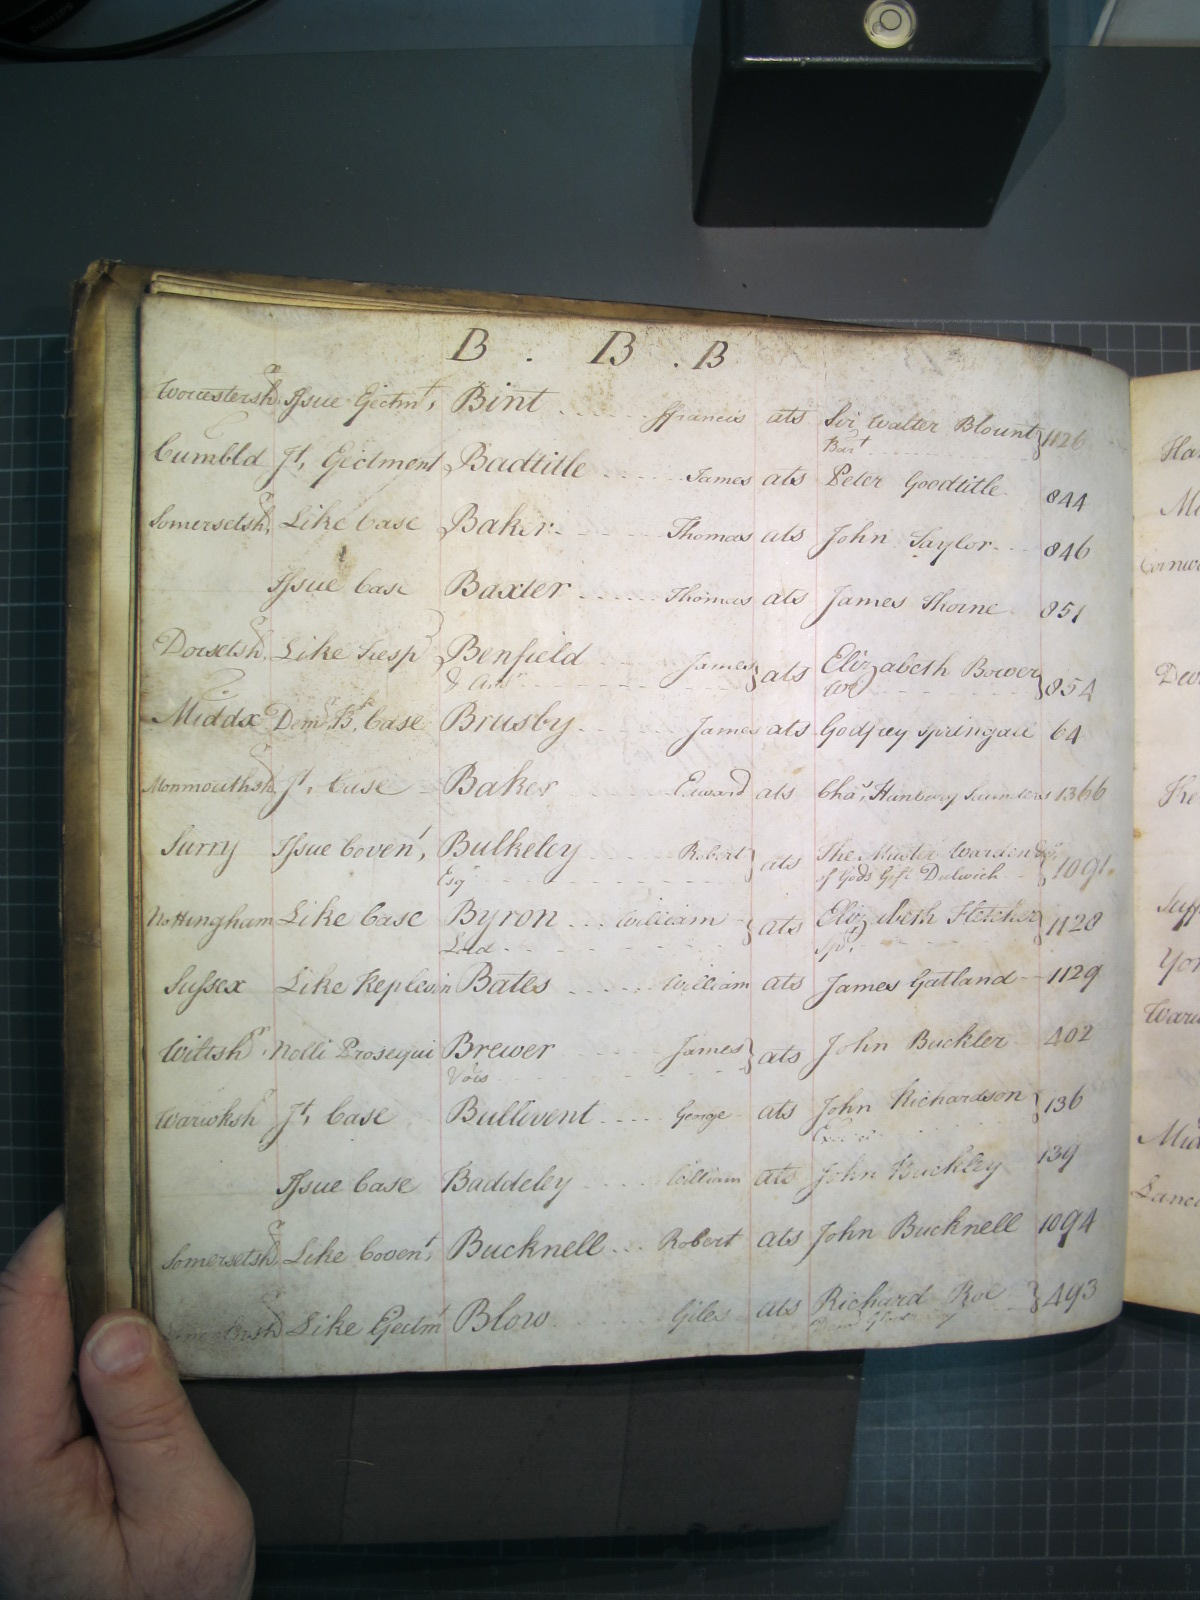 B . B . B
Worcestersh Issue Ejectmt, Bint ffrancis ats Sir Walter Blount 1126
Bart
Cumbld Jt, Ejectment Badtitle James ats Peter Goodtitle 844
Somersetsh, Like Case Baker Thomas ats John Taylor 846
Issue Case Baxter Thomas ats James Thorne 851
Dorsetsh, Like Tresp Benfield James ats Elizabeth Bower 854
& Anr
Middx Case Brusby James ats Godfrey Springall 64
Monmouthsh Jt, Case Baker Edward ats Chas, Hanbury Saunders 1366
Surry Issue Covent, Bulkeley Robert ats The Master Warden &c, 1091
Esqr of Gods Gift Dulwich
Nottingham Like Case Byron William ats Elizabeth Fletcher 1128
Lord Spr,
Sussex Like Replevin Bates William ats James Gatland 1129
Wiltsh Nolli Prosequi Brewer James ats John Buckler 402
Warwksh Jt, Case Bullivent George ats John Richardson 136
Issue Case Baddeley William ats John Buckley 139
Somersetsh, Like Covent, Bucknell Robert ats John Bucknell 1094
Like Ejectmt Blow Giles ats Richard Roe 493
Har
Mi
Cornwa
Dev
Ke
Suff
Yor
Warw
Mid
Lanca